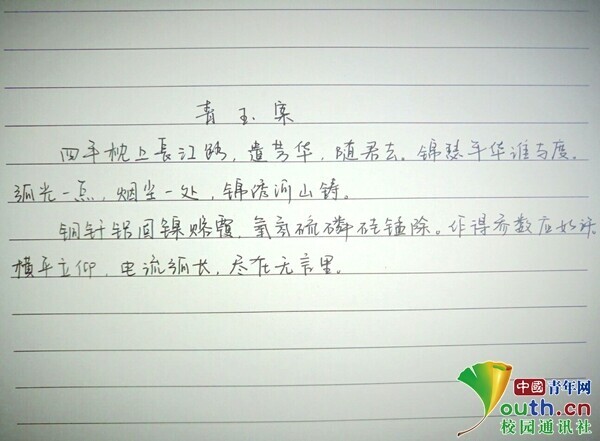 青玉案
四年枕上長江路，遗芳华，随君去。锦瑟年华谁与度。
弧光一点，烟尘一处，锦济河山铸。
铜钎铝固镍铬霞，氧氢硫磷硅锰除。作得参数应如诀
横平立仰，电流弧长，尽在无言里。
中國青年网
youth.cn
校园通讯社